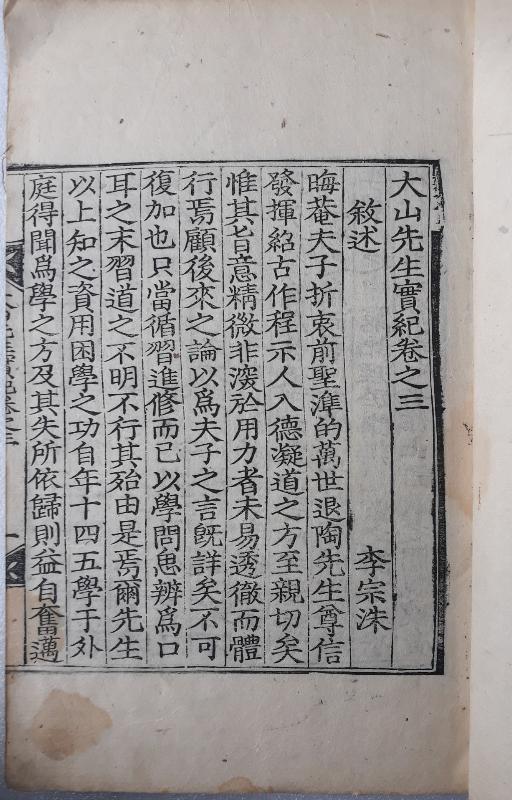 大山先生實紀卷之三
敘述 李宗洙
晦菴夫子折衷前聖準的萬世退陶先生尊信
發揮紹古作程示人入德凝道之方至親切矣
惟其旨意精微非深於用力者未易透徹而體
行焉顧後來之論以爲夫子之言旣詳矣不可
復加也只當循習進修而已以學問思辨爲口
耳之末習道之不明不行其殆由是焉爾先生
以上知之資用困學之功自年十四五學于外
庭得聞爲學之方及其失所依歸則益自奮邁